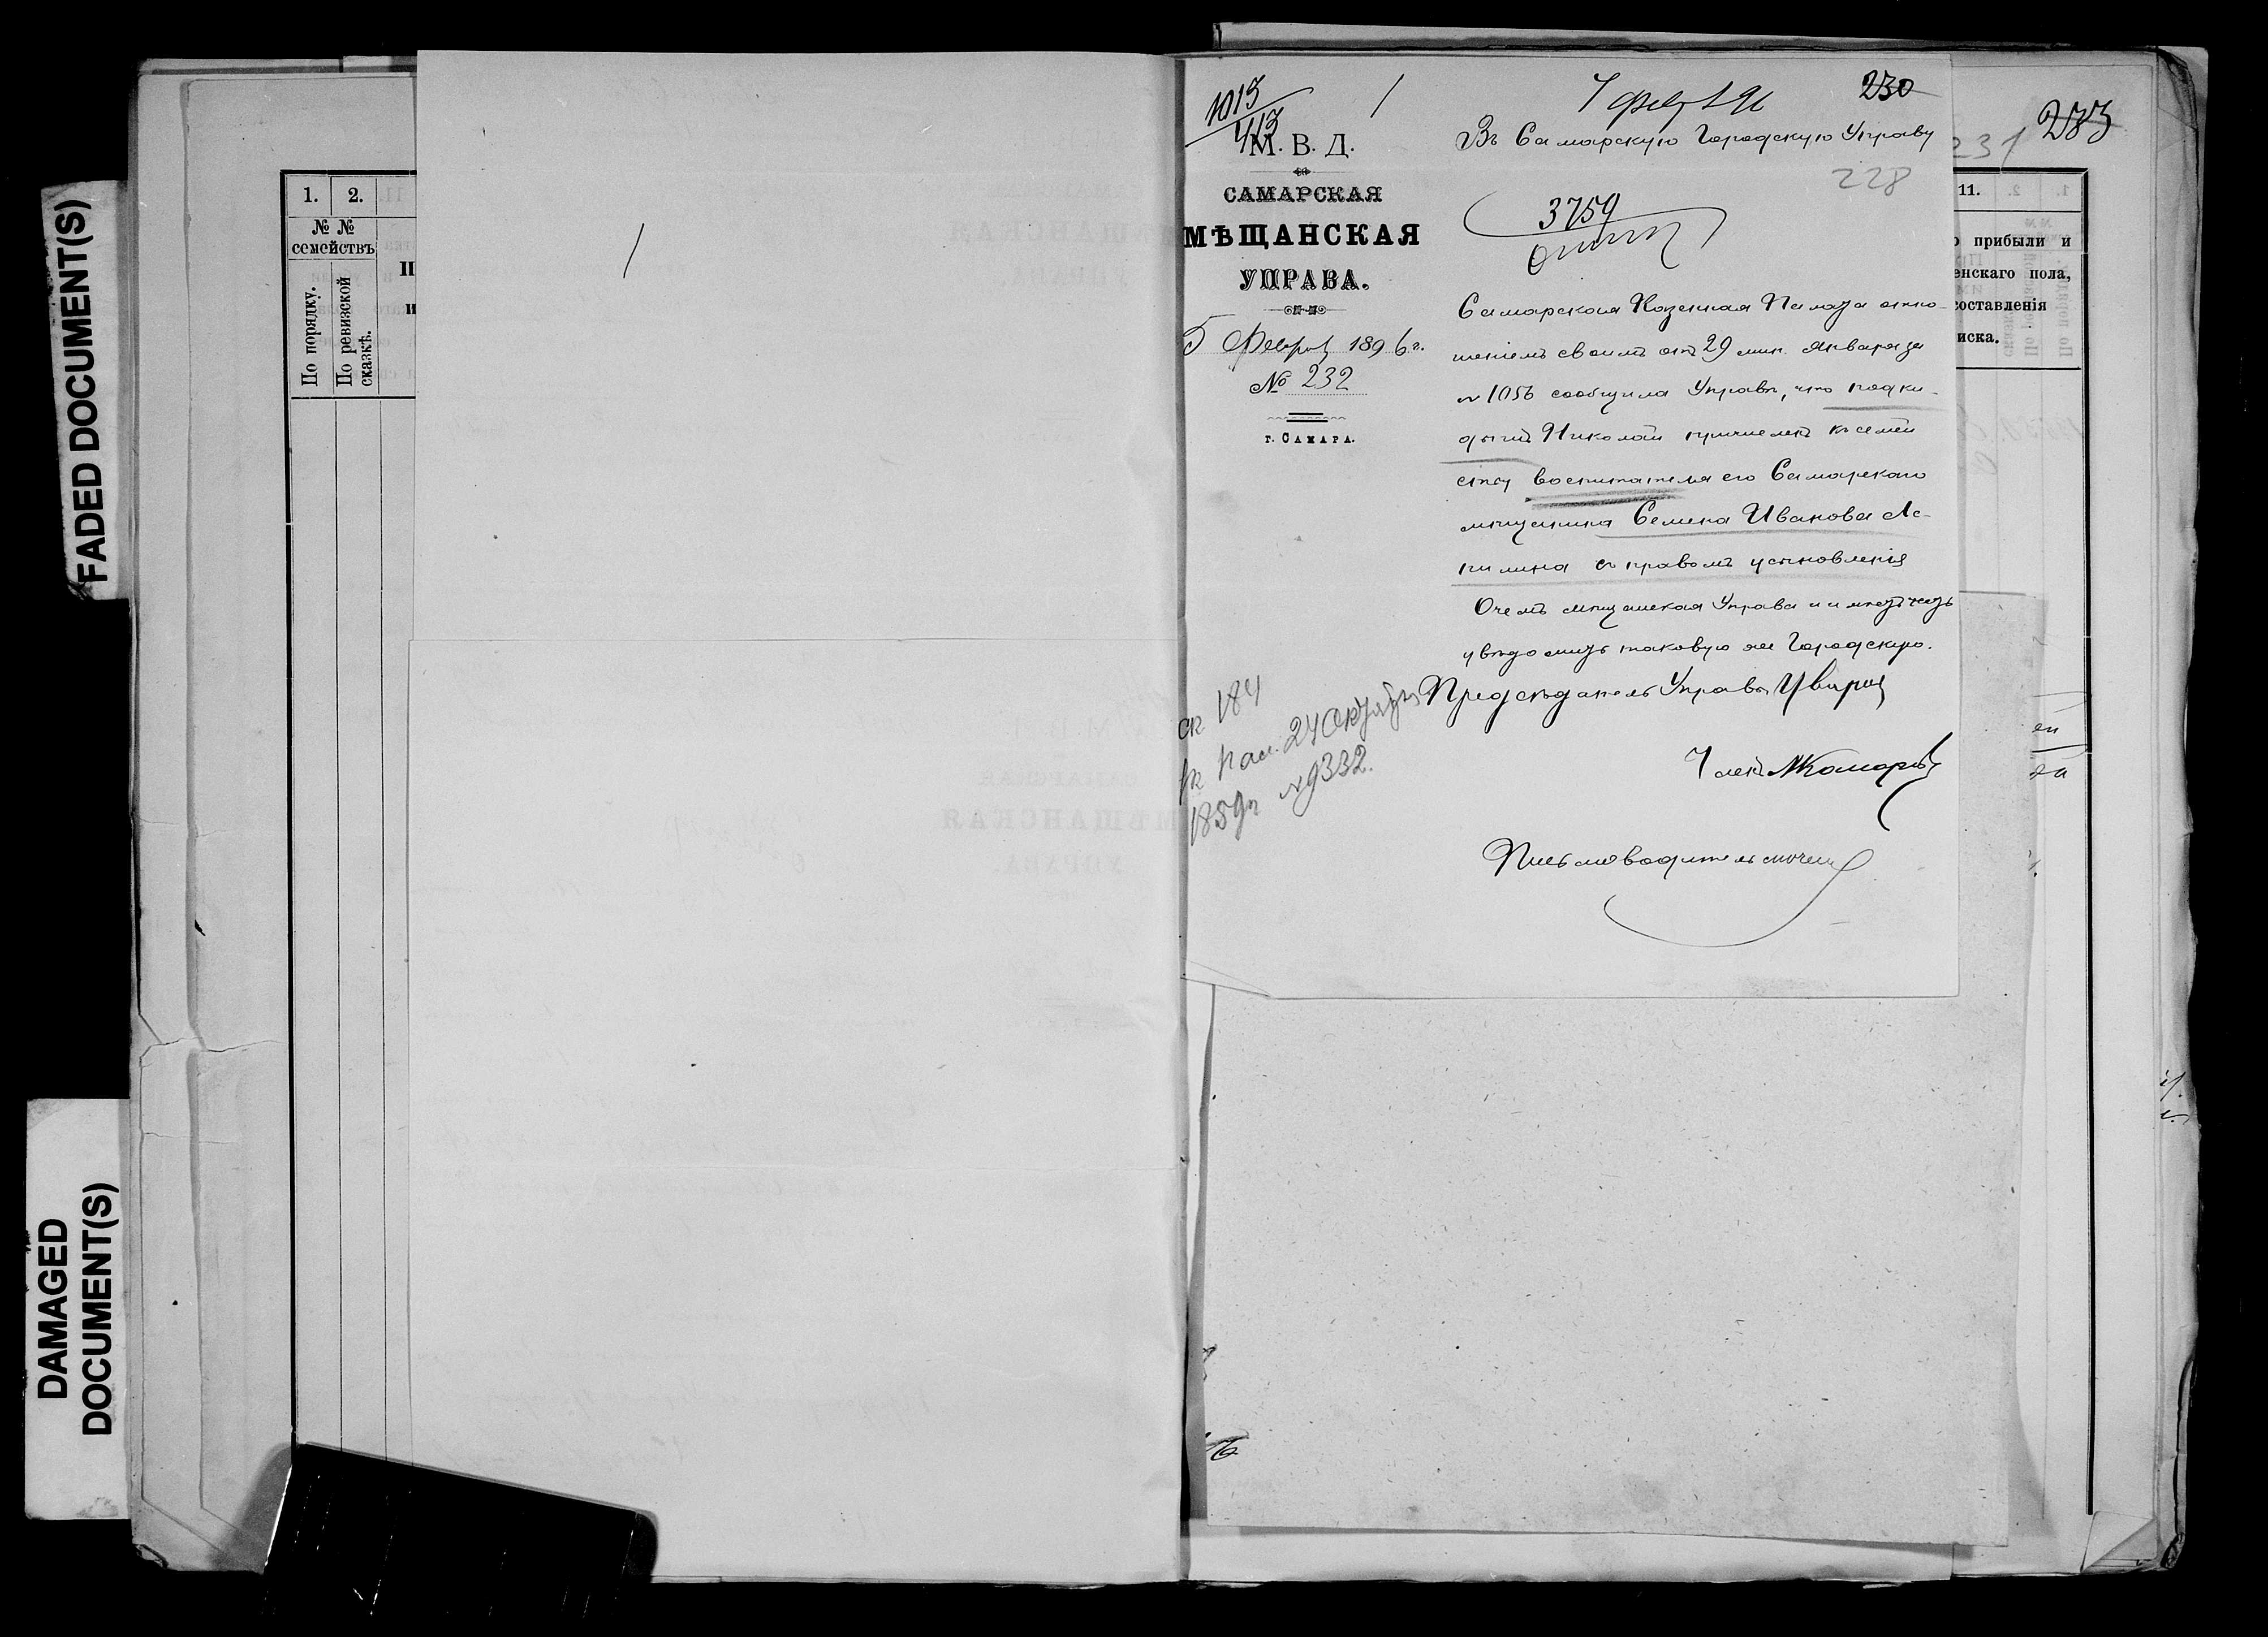 FADED DOCUMENT(S)
DAMAGED
DOCUMENT(S)
1. 2.
№ №
семействъ
По порядку.
По ревизской
сказкѣ.
1013
413
7 фев 96
230
М. В. Д.
САМАРСКАЯ
МѢЩАНСКАЯ
УПРАВА.
5 Февр 1896 г.
№ 232
г. САМАРА.
Въ Самарскую Городскую Управу
228
3759
Самарская Казенная Палата отно-
шеніемъ своимъ отъ 29 мин. Января за
№ 1056 сообщила Управѣ, что подки-
дышъ Николай причисленъ къ семей
ству воспитателя его Самарскаго
мѣщанина Семена Иванова Ас-
пилина съ правомъ усыновленія
О чемъ мѣщанская Управа и имѣетъ честь
увѣдомить таковую же Городскую.
Предсѣдатель Управы
Членъ Комаровъ
Письмоводитель
184
Пал. 24 Октября
1859 г № 9332.
231
283
11.
прибыли и
енскаго пола,
составленія
иска.